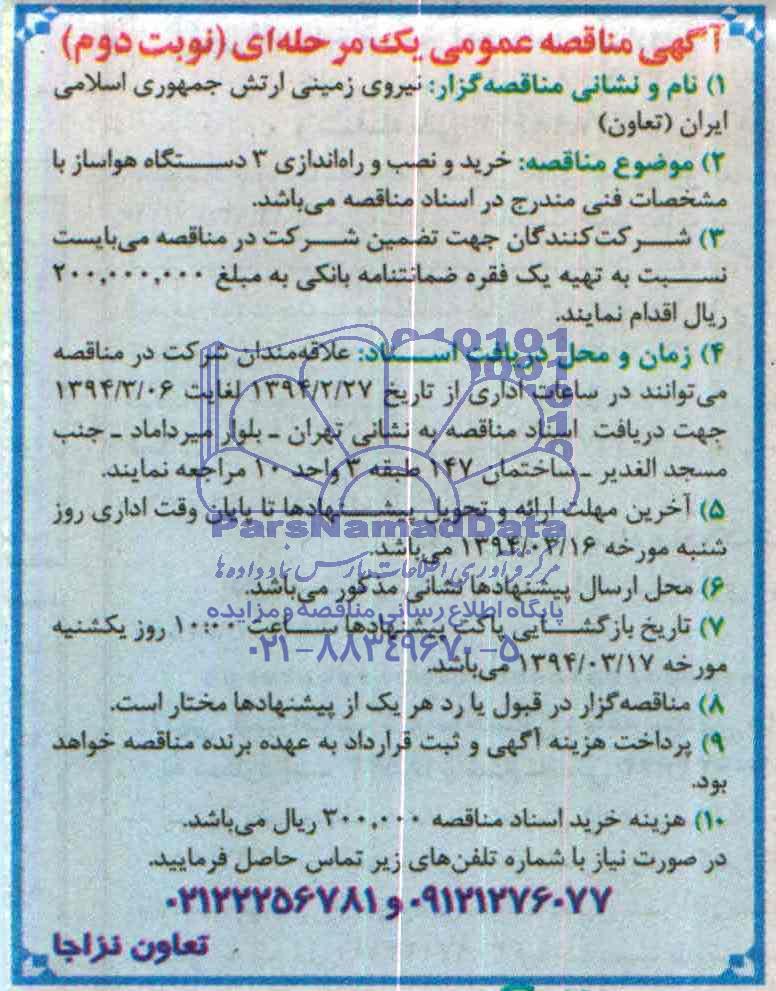 آگهی مناقصه عمومی یک مرحله‌ای (نوبت دوم)
۱) نام و نشانی مناقصه‌گزار: نیروی زمینی ارتش جمهوری اسلامی
ایران (تعاون)
۲) موضوع مناقصه: خرید و نصب و راه‌اندازی ۳ دستگاه هواساز با
مشخصات فنی مندرج در اسناد مناقصه می‌باشد.
۳) شرکت‌کنندگان جهت تضمین شرکت در مناقصه می‌بایست
نسبت به تهیه یک فقره ضمانتنامه بانکی به مبلغ ۲۰۰,۰۰۰,۰۰۰
ریال اقدام نمایند.
۴) زمان و محل دریافت اسناد: علاقه‌مندان شرکت در مناقصه
می‌توانند در ساعات اداری از تاریخ ۱۳۹۴/۲/۲۷ لغایت ۱۳۹۴/۳/۰۶
جهت دریافت اسناد مناقصه به نشانی تهران ـ بلوار میرداماد ـ جنب
مسجد الغدیر ـ ساختمان ۱۴۷ طبقه ۳ واحد ۱۰ مراجعه نمایند.
۵) آخرین مهلت ارائه و تحویل پیشنهادها تا پایان وقت اداری روز
شنبه مورخه ۱۳۹۴/۰۳/۱۶ می‌باشد.
۶) محل ارسال پیشنهادها نشانی مذکور می‌باشد.
۷) تاریخ بازگشایی پاکت پیشنهادها ساعت ۱۰:۰۰ روز یکشنبه
مورخه ۱۳۹۴/۰۳/۱۷ می‌باشد.
۸) مناقصه‌گزار در قبول یا رد هر یک از پیشنهادها مختار است.
۹) پرداخت هزینه آگهی و ثبت قرارداد به عهده برنده مناقصه خواهد
بود.
۱۰) هزینه خرید اسناد مناقصه ۳۰۰,۰۰۰ ریال می‌باشد.
در صورت نیاز با شماره تلفن‌های زیر تماس حاصل فرمایید.
۰۹۱۲۱۲۷۶۰۷۷ و ۰۲۱۲۲۲۵۶۷۸۱
تعاون نزاجا
ParsNamadData
مرکز فرآوری اطلاعات پارس نماد داده‌ها
پایگاه اطلاع رسانی مناقصه و مزایده
۰۲۱-۸۸۳۴۹۶۷۰-۵